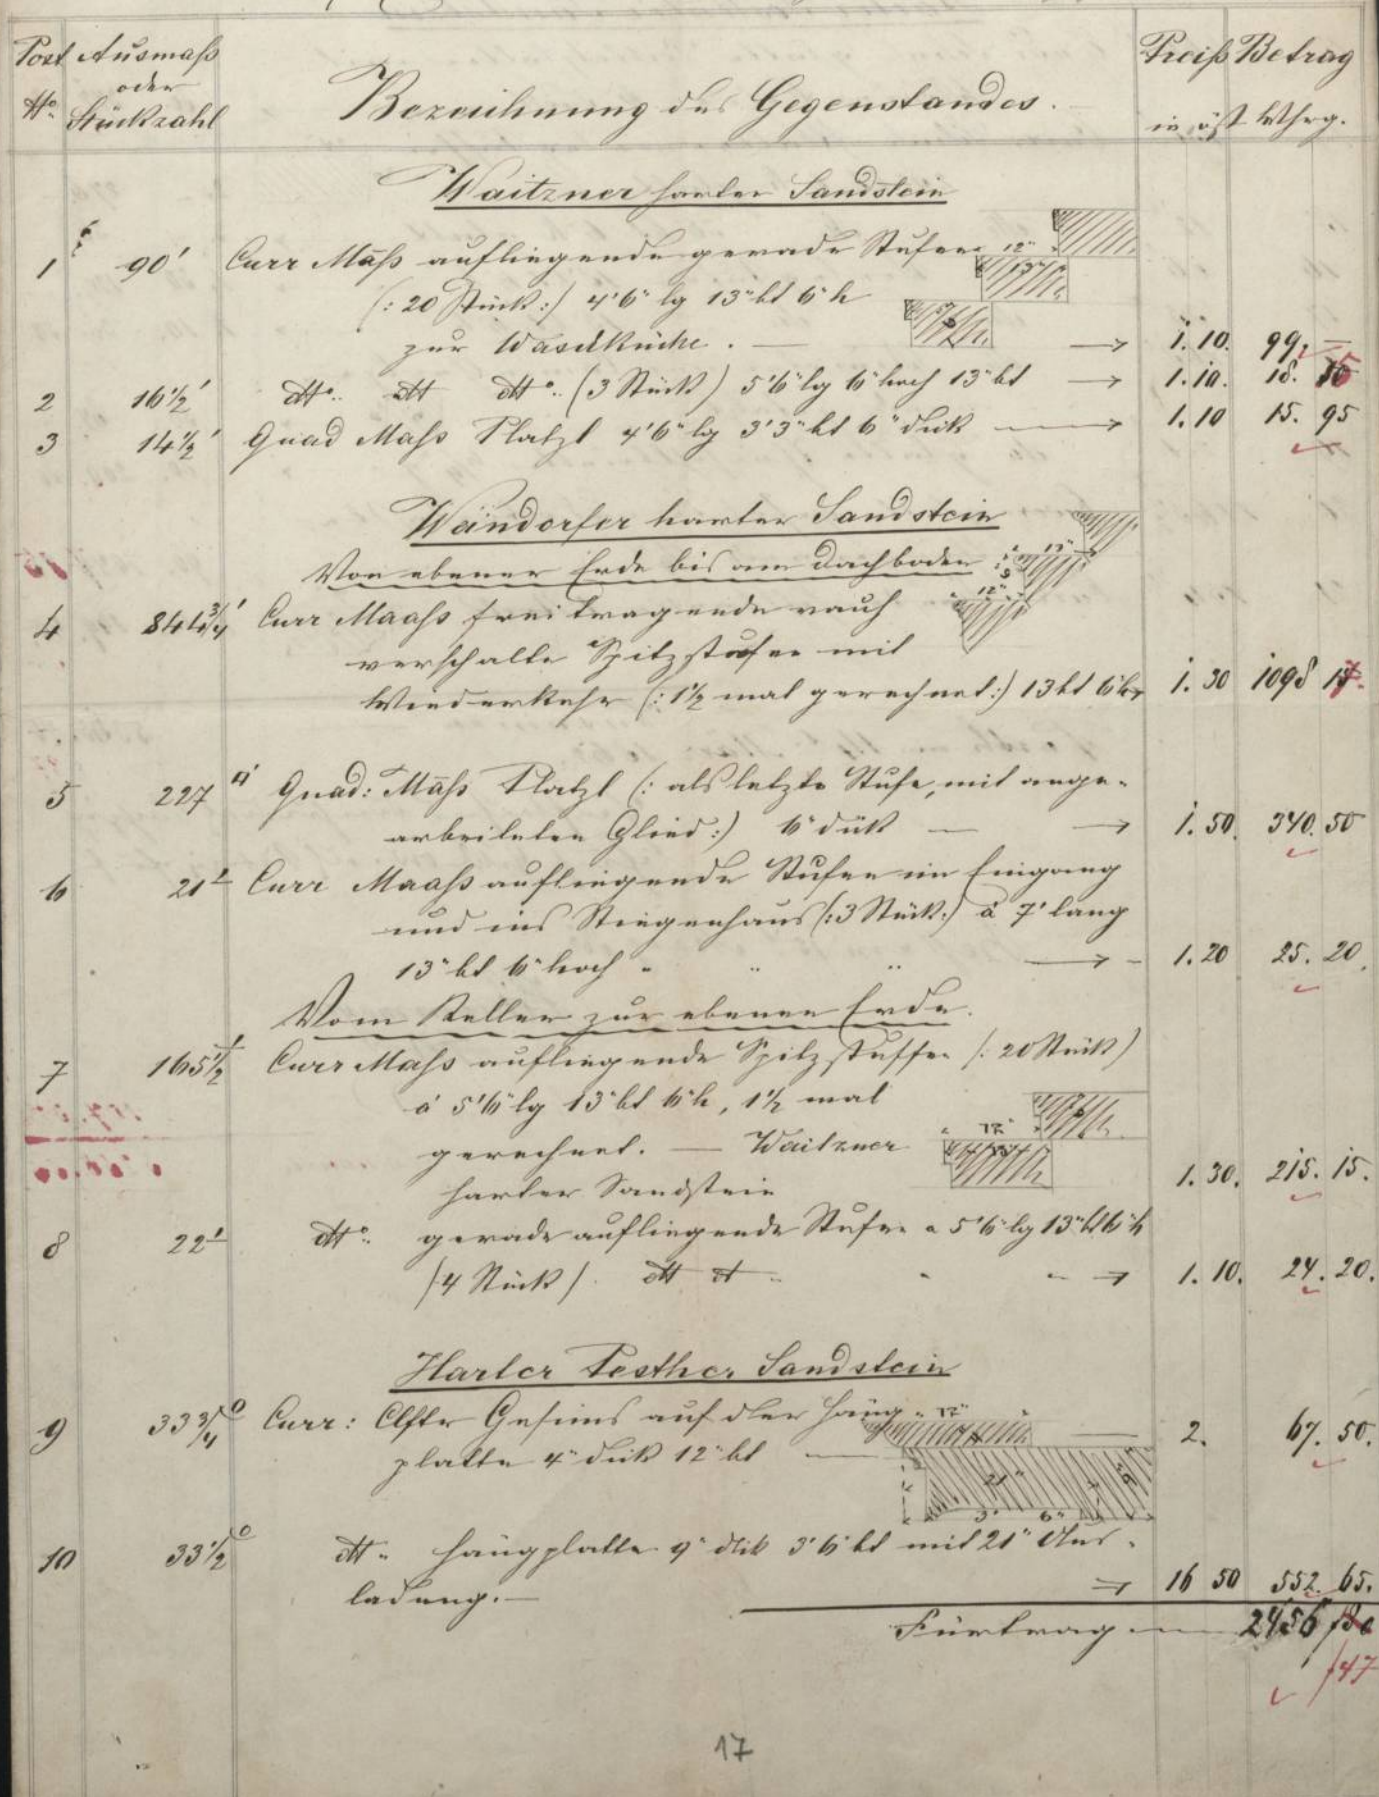 Post Ausmaß Preiß Betrag
oder
No. Stückzahl Bezeichnung des Gegenstandes. in öst Whrg.
Waitzner harter Sandstein
1 90' Curr Māß aufliegende gerade Stufen 12" 13"
(: 20 Stück :) 4'6" lg 13" bt 6" h
zur Waschküche. — → 1. 10. 99. —
2 16 1/2' dtto.. dtt dtto.. (3 Stück) 5'6" lg 6" hoch 13" bt → 1. 10. 18. 15
3 14 1/2' Quad Mass Platzl 4'6" lg 3'3" bt 6" dick → 1. 10 15. 95
Weindorfer harter Sandstein
Von ebener Erde bis am Dachboden
4 844 3/4' Curr Maaß frei tragende rauh 12"
verschalte Spitzstufen mit
Wiederkehr (: 1 1/2 mal gerechnet :) 13 bt 6 h 1. 30 1098 17.
5 227 □' Quad: Māß Platzl (: als letzte Stufe, mit ange-
arbeiteten Glied :) 6" dick — → 1. 50. 340. 50
6 21' Curr Maaß aufliegende Stufen im Eingang
und ins Stiegenhaus (: 3 Stück :) à 7' lang
13" bt 6" hoch " " " → 1. 20 25. 20.
Vom Keller zur ebenen Erde.
7 165 1/2' Curr Maß aufliegende Spitzstuffen (: 20 Stück)
à 5'6" lg 13" bt 6" h, 1 1/2 mal
gerechnet. — Waitzner 12"
harter Sandstein 1. 30. 215. 15.
8 22' dtto.. gerade aufliegende Stufen a 5'6" lg 13" bt 6" h
(4 Stück) dtt dt " " → 1. 10. 24. 20.
Harter Pesther Sandstein
9 33 3/4° Curr: Clftr Gesims auf der Häng- 12"
platte 4" dick 12" bt — 2. 67. 50.
21" 9"
3" 6"
10 33 1/2° dtt " Hängplatte 9" dik 3'6" bt mit 21" Aus-
ladung. — → 16 50 552. 65.
Fürtrag — 2456
/47
17